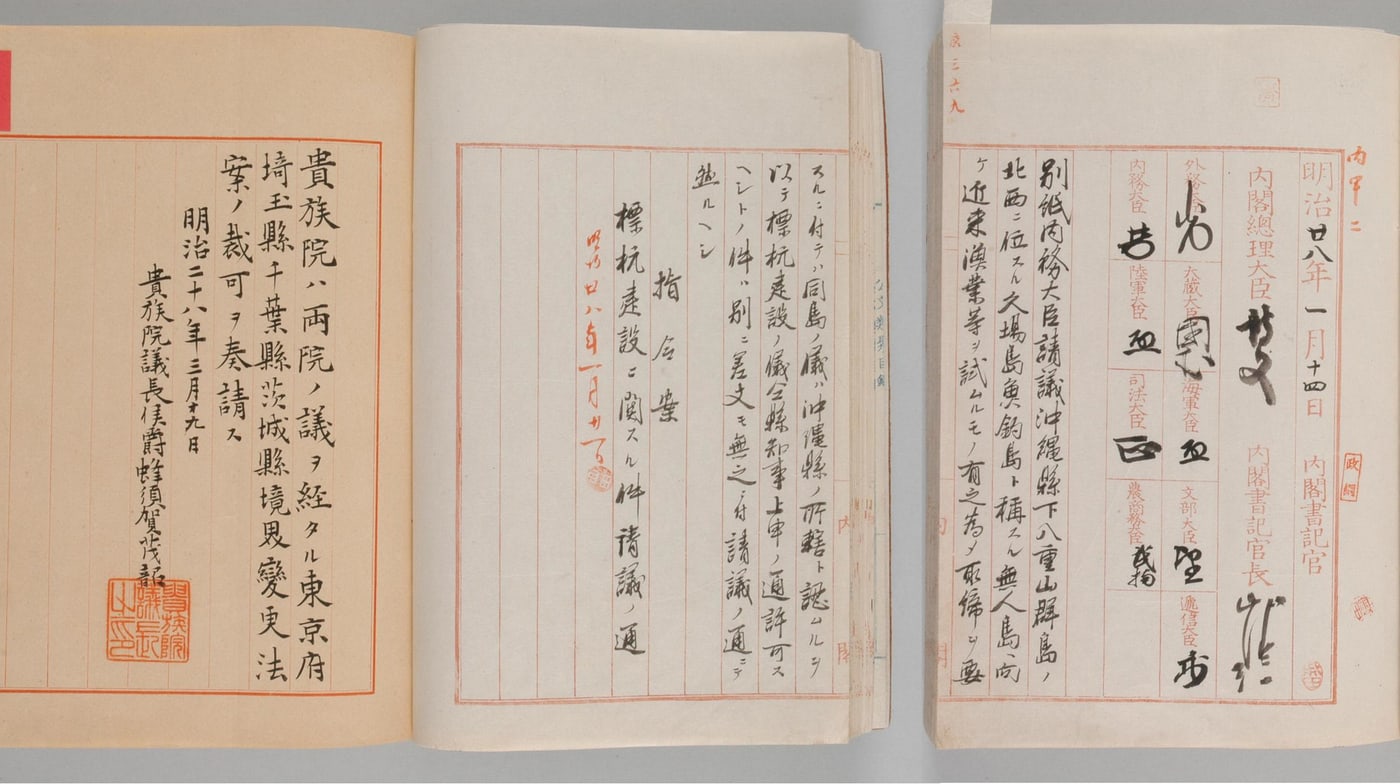 内甲二
明治廿八年一月十四日 内閣書記官
内閣總理大臣 内閣書記官長
外務大臣 大藏大臣 海軍大臣 文部大臣 遞信大臣
内務大臣 陸軍大臣 司法大臣 農商務大臣
別紙内務大臣請議沖縄縣下八重山群島ノ
北西ニ位スル久場島魚釣島ト稱スル無人島ヘ向
ケ近来漁業等ヲ試ムルモノ有之為メ取締ヲ要
スルニ付テハ同島ノ儀ハ沖縄縣ノ所轄ト認ムルヲ
以テ標杭建設ノ儀仝縣知事上申ノ通許可ス
ヘシトノ件ハ別ニ差支モ無之ニ付請議ノ通ニテ
然ルヘシ
指令案
標杭建設ニ関スル件請議ノ通
明治廿八年一月廿一日
内閣
貴族院ハ両院ノ議ヲ経タル東京府
埼玉縣千葉縣茨城縣境界變更法
案ノ裁可ヲ奏請ス
明治二十八年三月十九日
貴族院議長侯爵蜂須賀茂韶